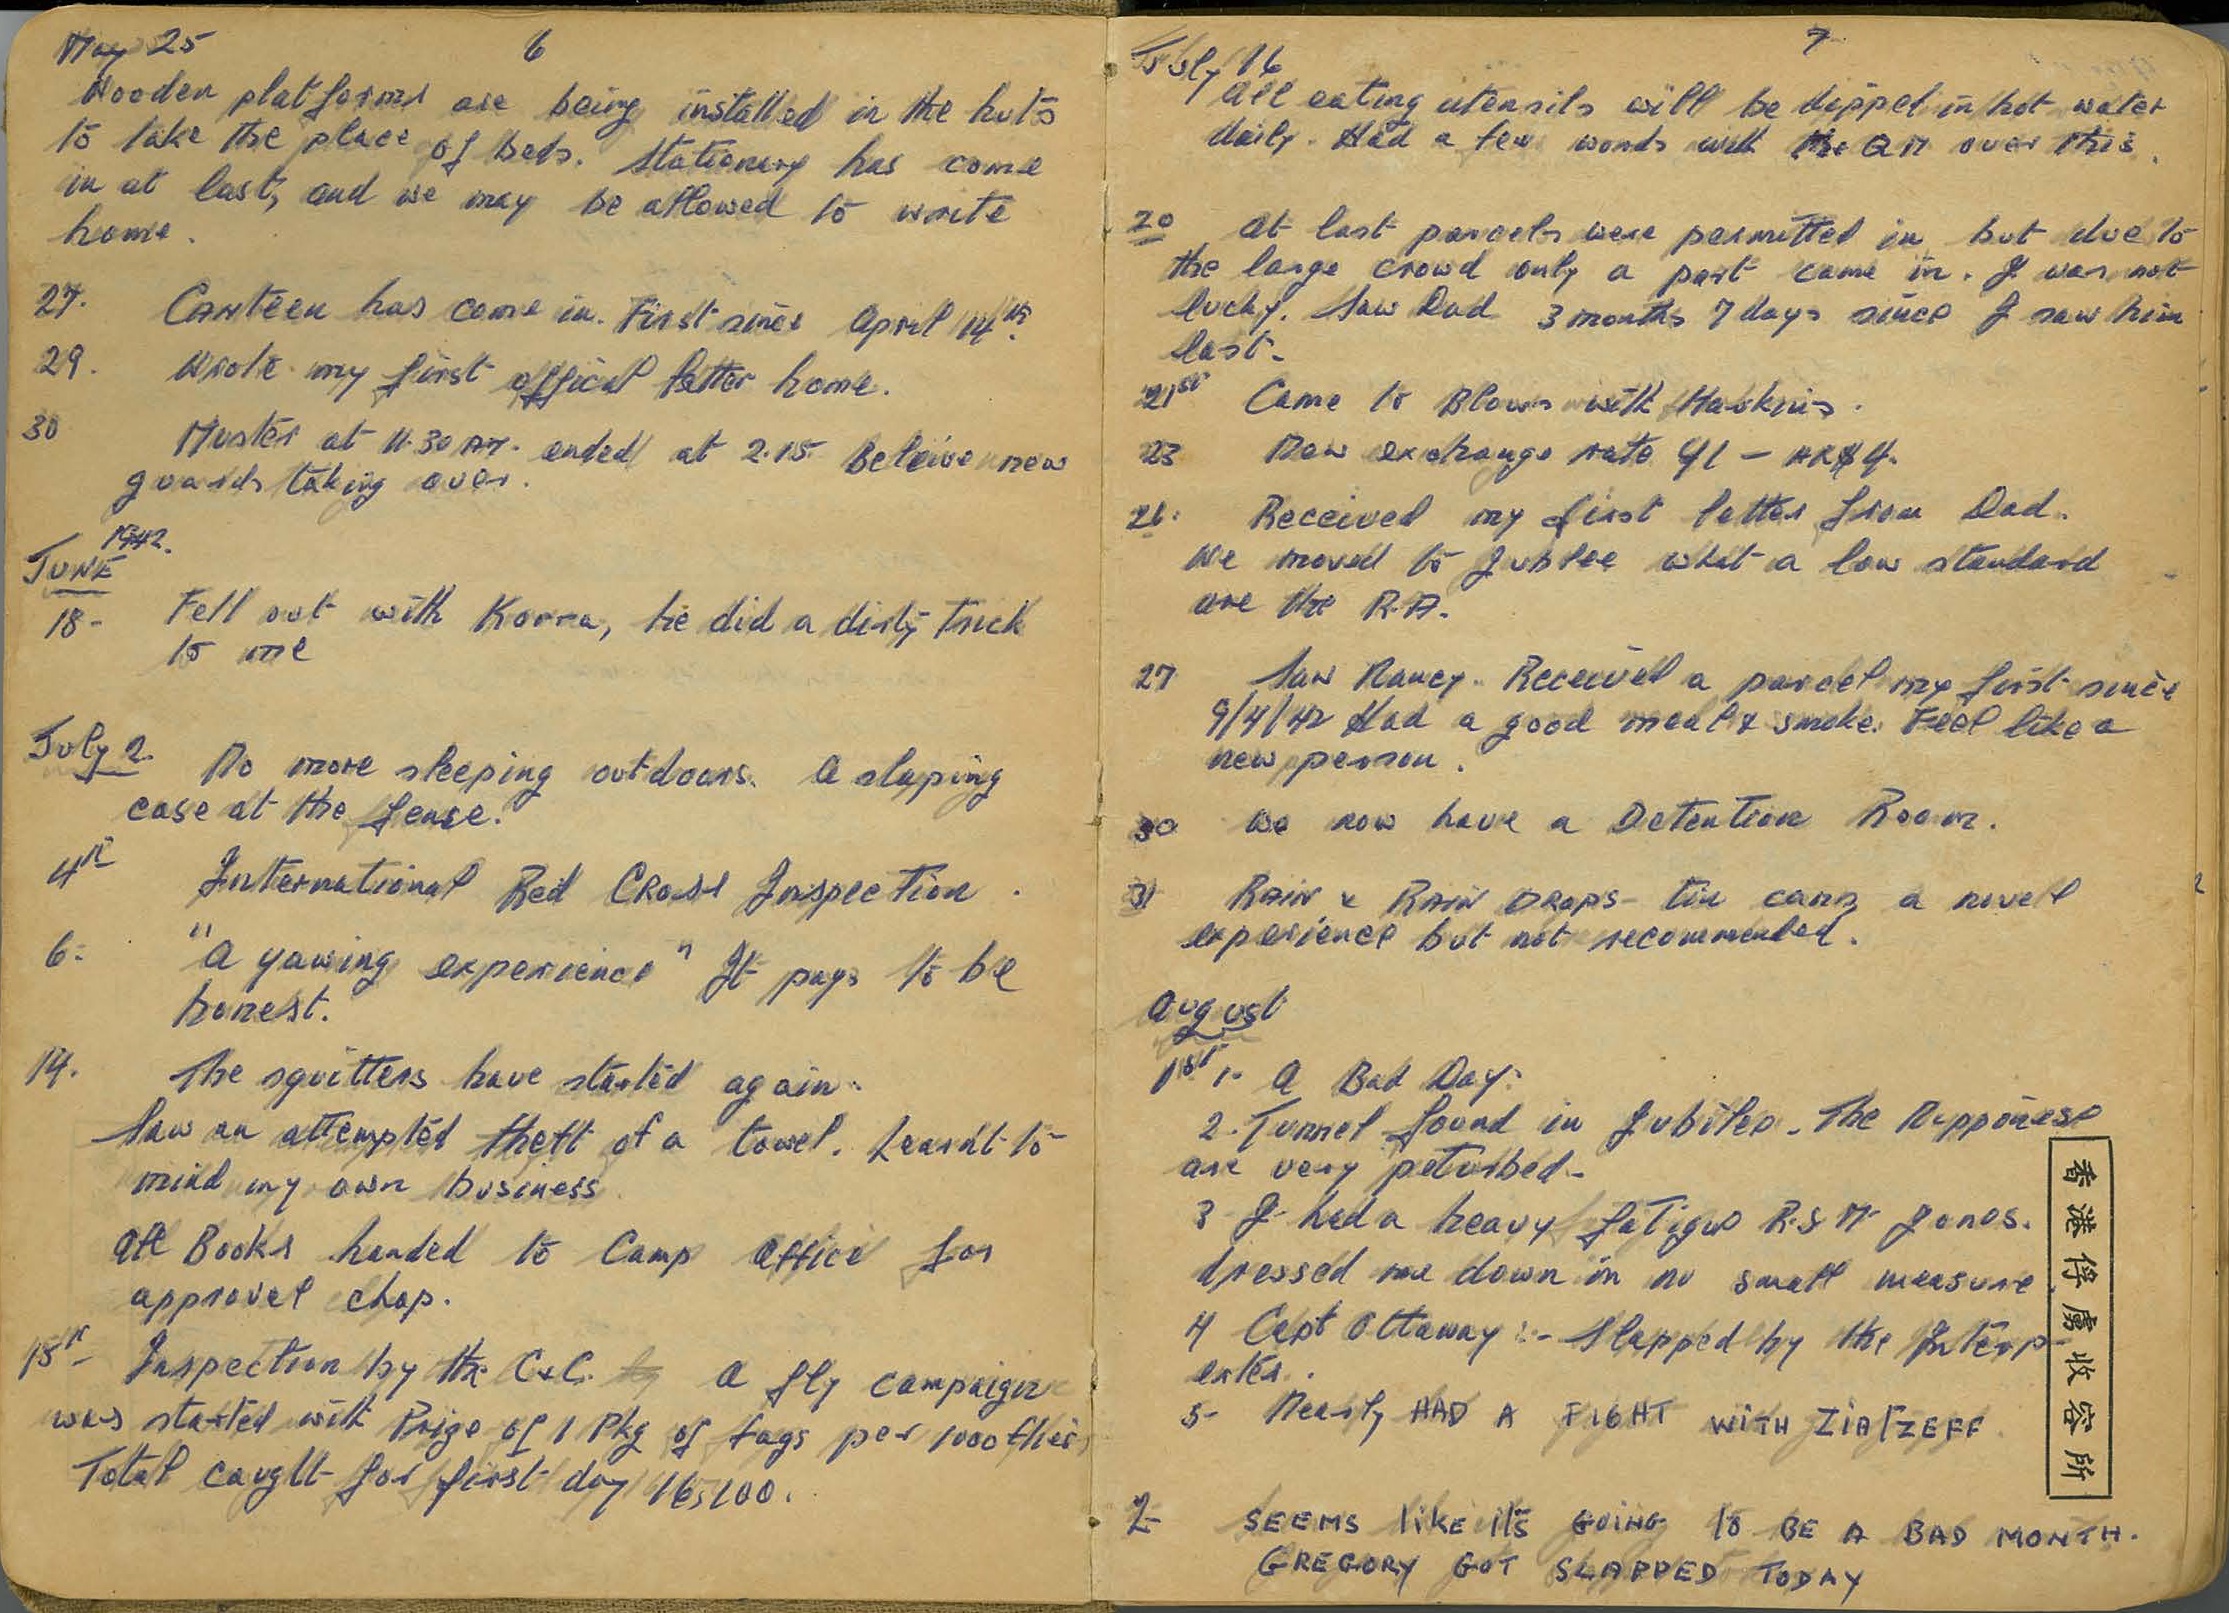 May 25
6
Wooden platforms are being installed in the huts
to take the place of beds. Stationery has come
in at last, and we may be allowed to write
home.
27. Canteen has come in. First since April 14th.
29. Wrote my first offical letter home.
30 Muster at 11.30 AM. ended at 2.15. Beleive new
guards taking over.
1942.
JUNE
18- Fell out with Korra, he did a dirty trick
to me
July 2. No more sleeping outdoors. A slaping
case at the fense.
4th International Red Cross Inspection.
6- "A yawing experience" It pays to be
honest.
14. The squitters have started again.
Saw an attempted theft of a towel. Learnt to
mind my own business
All Books handed to Camp Office for
approvel chop.
15th- Inspection by the C&C. A fly campaign
was started with Prize of 1 Pkg of fags per 1000 flies
Total caught for first day 16,100.
7
July 16
All eating utensils will be dipped in hot water
daily. Had a few words with the QM over this.
20 At last parcels were permitted in but due to
the large crowd only a part came in. I was not
lucky. Saw Dad 3 months 7 days since I saw him
last.
21st Came to Blows with Haskins.
23 New exchange rate Y1 - HK$4.
26. Received my first letter from Dad.
We moved to Jublee what a low standard
are the R.A.
27 Saw Nancy. Received a parcel my first since
9/4/42 Had a good meal & smoke. Feel like a
new person.
30 We now have a Detention Room.
31 RAIN & RAIN DROPS - tin cans a novell
experience but not recommended.
August
1st 1- A Bad Day.
2. Tunnel found in Jubilee. The Nipponese
are very peturbed-
3 I had a heavy fatigue R.S.M. Jones.
dressed me down in no small measure
4 Capt Ottaway :- Slapped by the Interp-
erter.
5- Nearly HAD A FIGHT WITH
SEEMS like it's GOING to BE A BAD MONTH.
GREGORY GOT SLAPPED TODAY
香港俘虜收容所